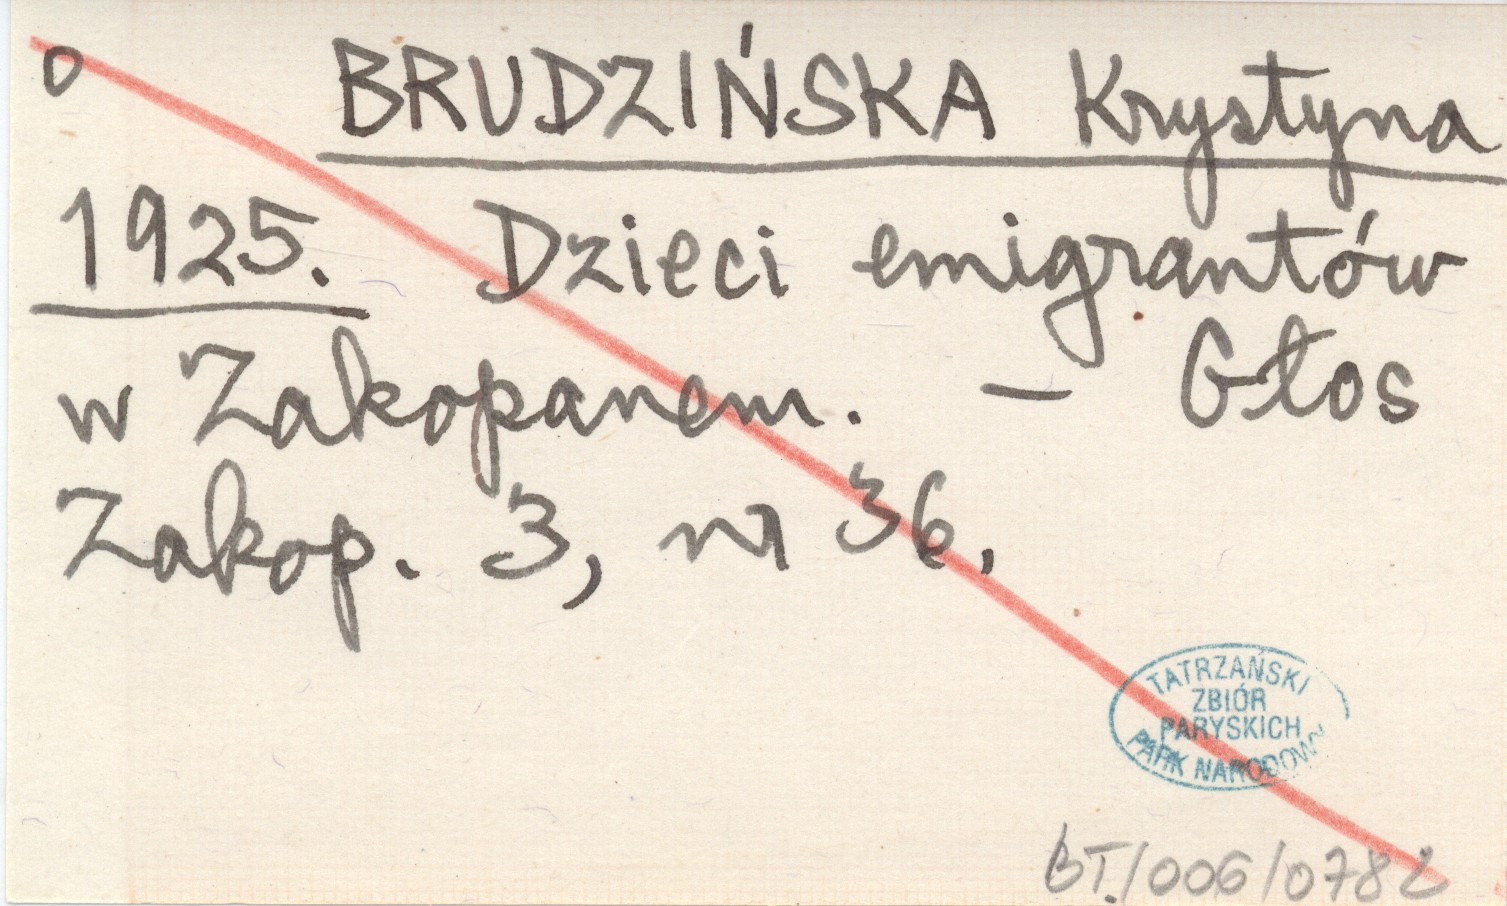 o BRUDZIŃSKA Krystyna
1925. Dzieci emigrantów
w Zakopanem. – Głos
Zakop. 3, nr 36.
TATRZAŃSKI
ZBIÓR
PARYSKICH
PARK NARODOWY
BT./006/0782